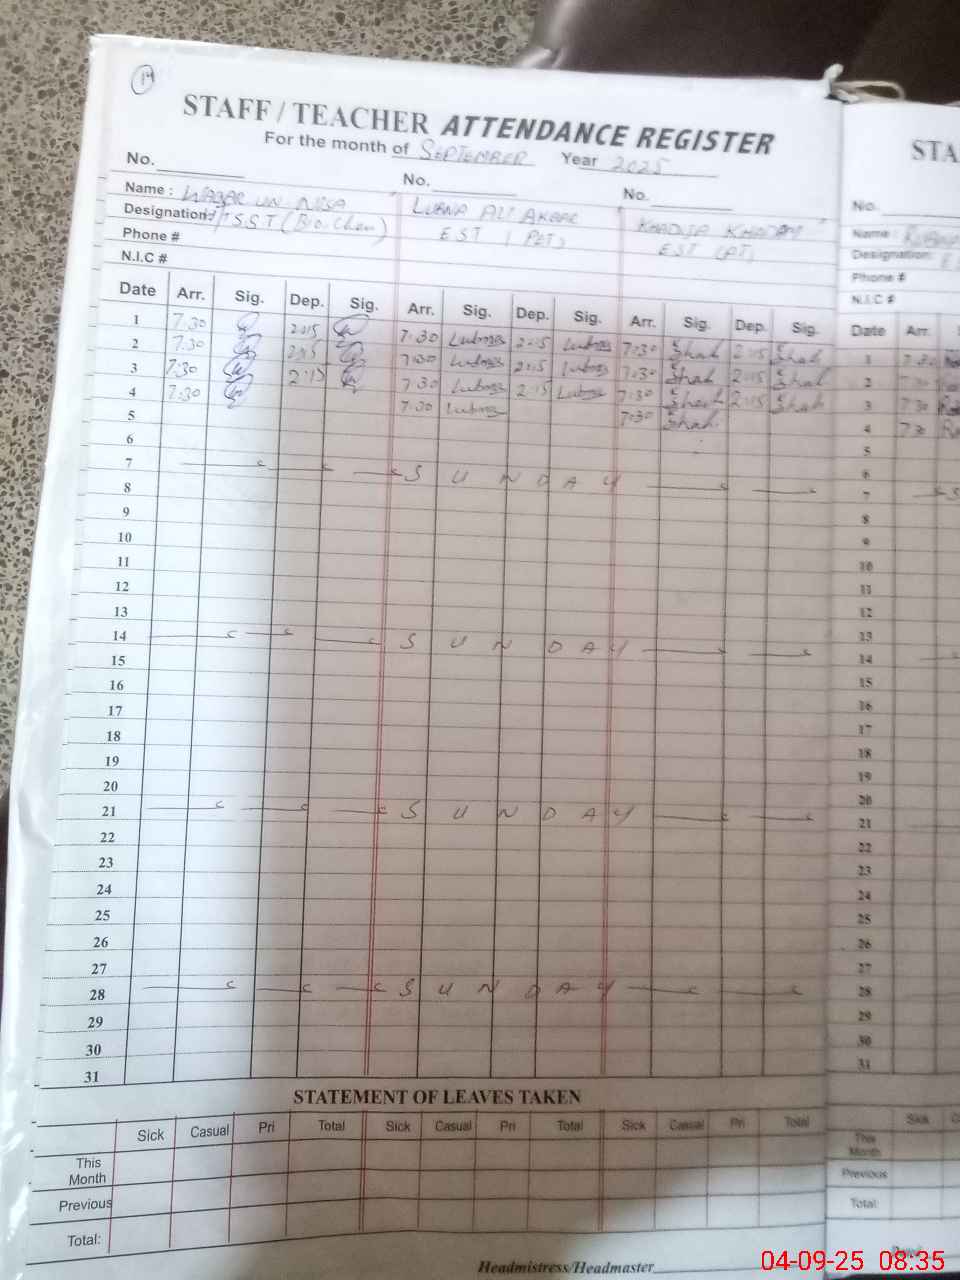 14
STAFF / TEACHER ATTENDANCE REGISTER
For the month of SEPTEMBER Year 2025
No. No. No.
Name : WAQAR UN NISA LUBNA ALI AKBAR KHADIJA KHADAM
Designation SST (Bio.Chem) EST (PET) EST (PT)
Phone #
N.I.C #
Date Arr. Sig. Dep. Sig. Arr. Sig. Dep. Sig. Arr. Sig. Dep. Sig.
1 7:30 2:15 7:30 Lubna 2:15 Lubna 7:30 Shah 2:15 Shah
2 7:30 2:15 7:30 Lubna 2:15 Lubna 7:30 Shah 2:15 Shah
3 7:30 2:15 7:30 Lubna 2:15 Lubna 7:30 Shah 2:15 Shah
4 7:30 7:30 Lubna 7:30 Shah
5
6
7 SUNDAY
8
9
10
11
12
13
14 SUNDAY
15
16
17
18
19
20
21 SUNDAY
22
23
24
25
26
27
28 SUNDAY
29
30
31
STATEMENT OF LEAVES TAKEN
Sick Casual Pri Total Sick Casual Pri Total Sick Casual Pri Total
This
Month
Previous
Total:
Headmistress/Headmaster
STA
No.
Name :
Designation:
Phone #
N.I.C #
Date Arr.
1 7:30
2 7:30
3 7:30
4 7:30
5
6
7 S
8
9
10
11
12
13
14
15
16
17
18
19
20
21
22
23
24
25
26
27
28
29
30
31
Sick C
This
Month
Previous
Total:
04-09-25 08:35